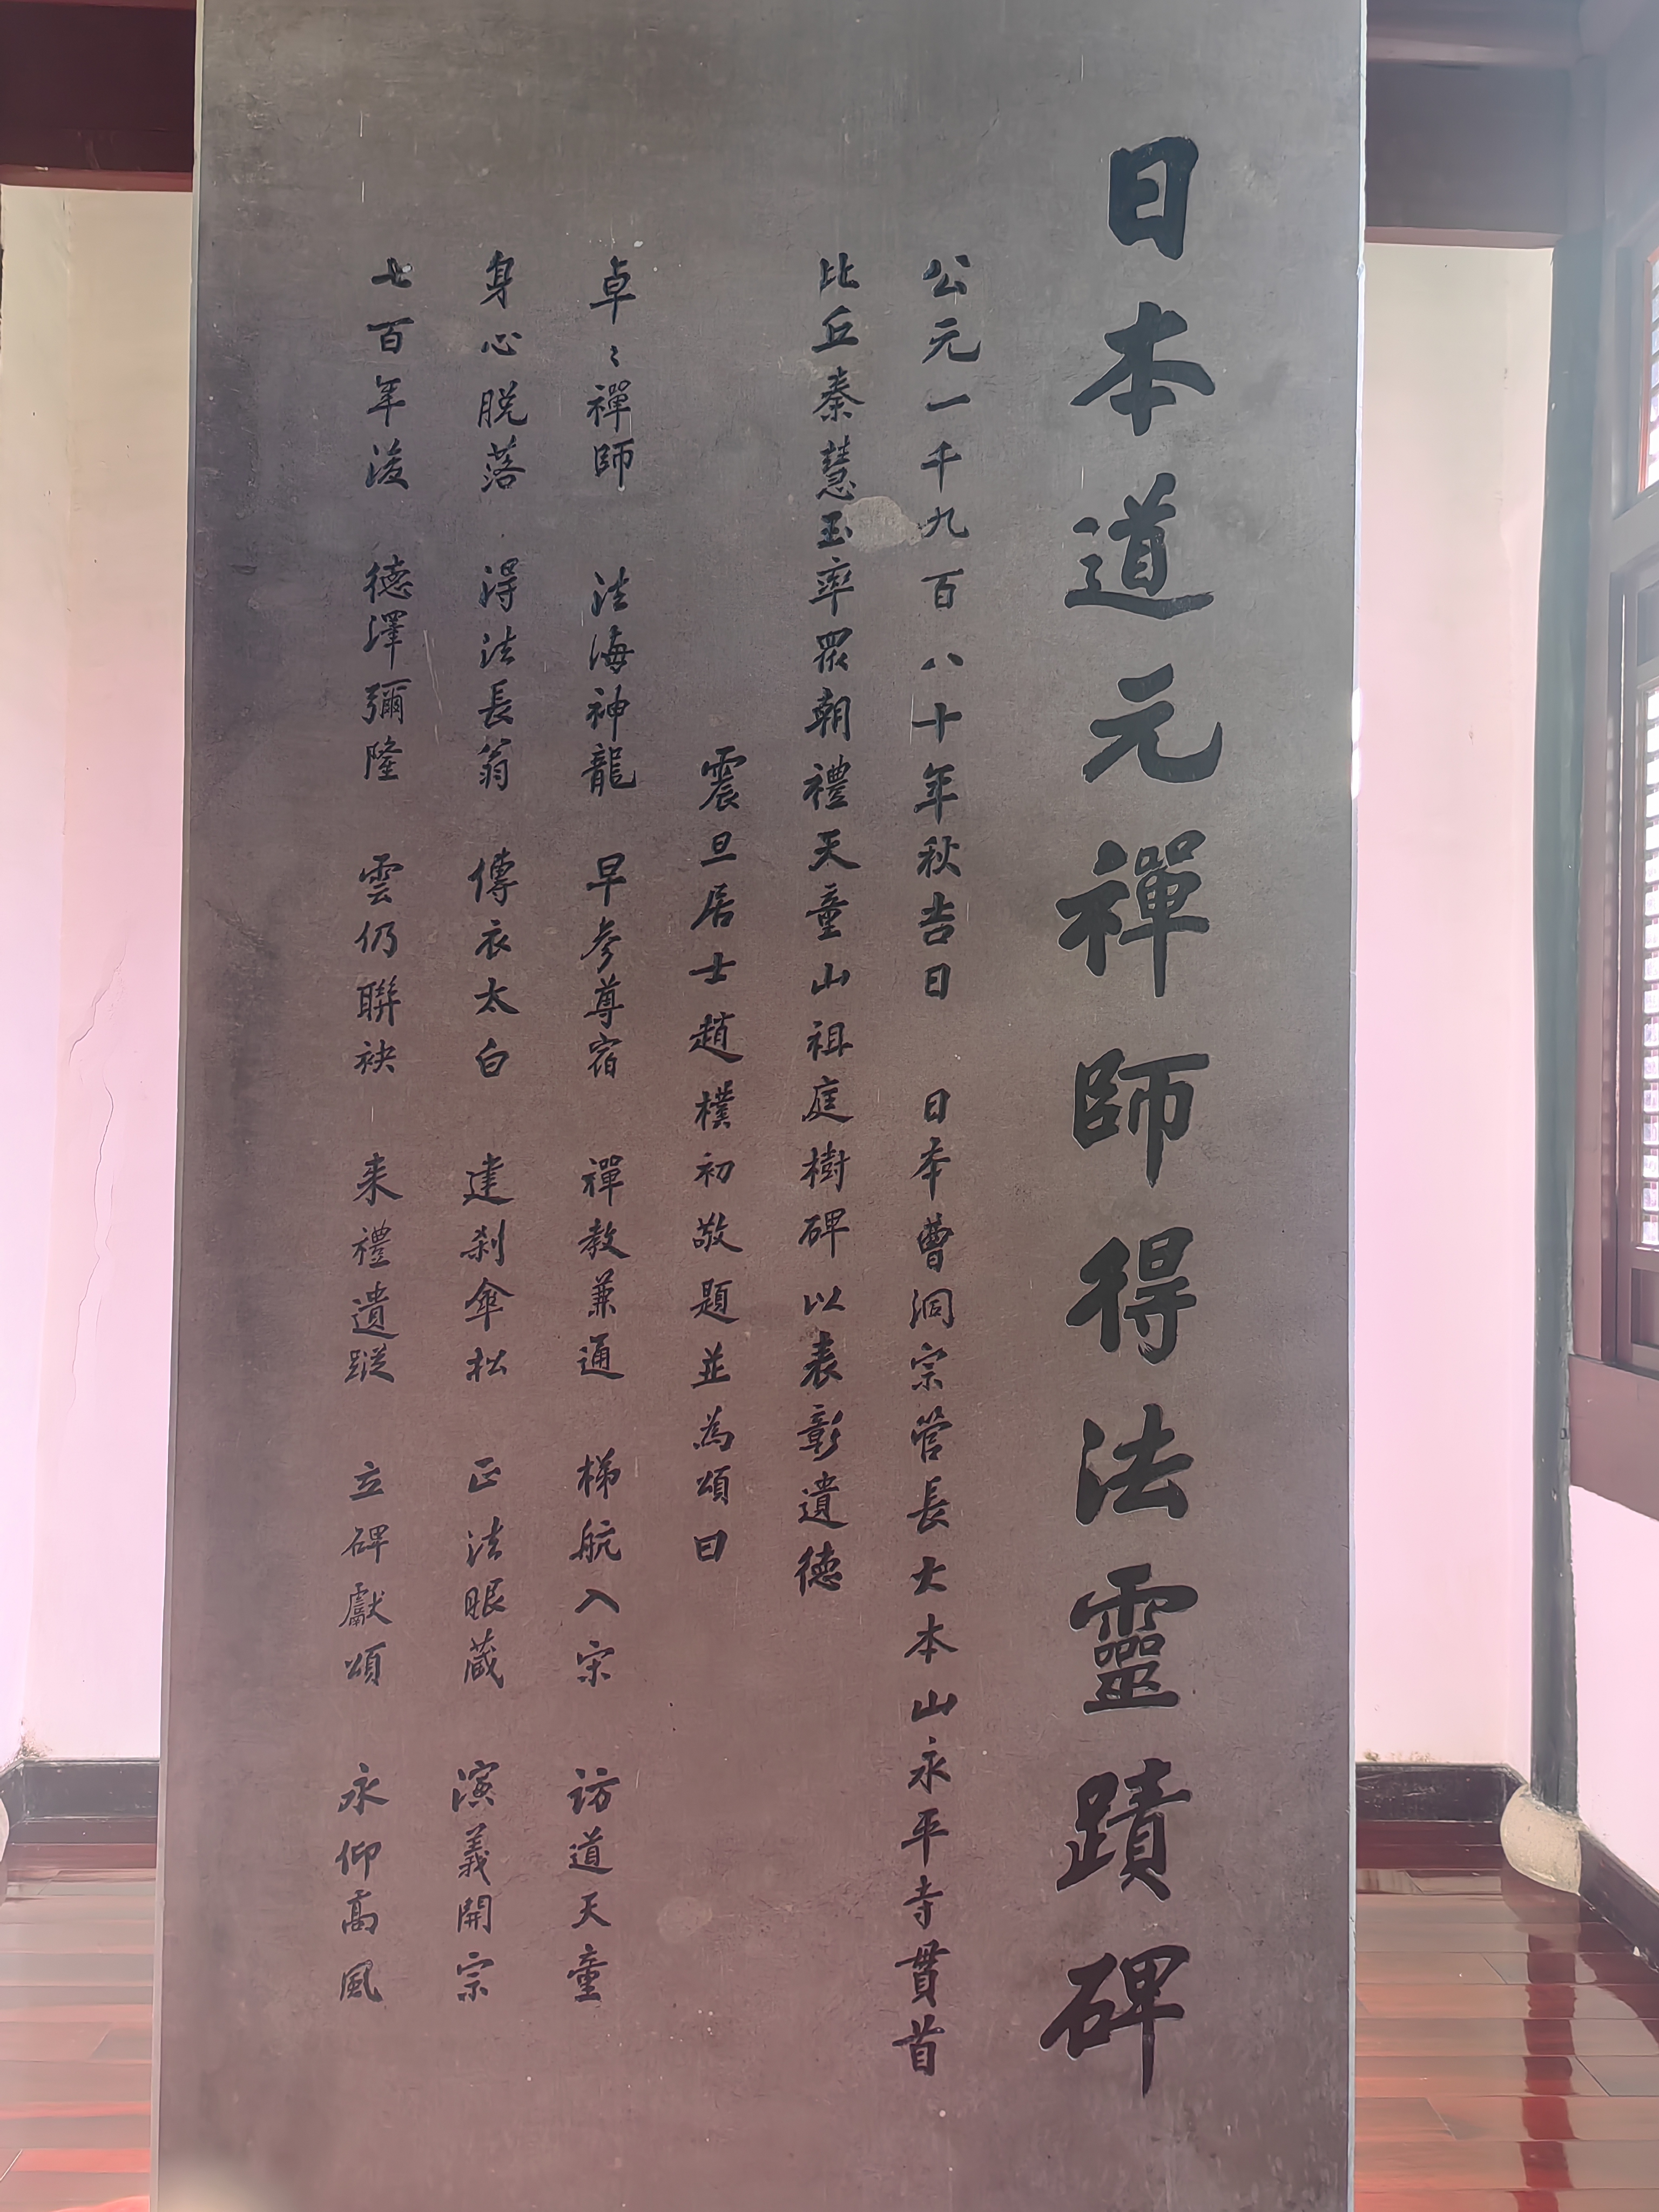 日本道元禪師得法靈蹟碑
公元一千九百八十年秋吉日 日本曹洞宗管長大本山永平寺貫首
比丘秦慧玉率眾朝禮天童山祖庭樹碑以表彰遺德
震旦居士趙樸初敬題並為頌曰
卓〻禪師 法海神龍 早參尊宿 禪教兼通 梯航入宋 訪道天童
身心脫落 得法長翁 傳衣太白 建剎傘松 正法眼藏 演義開宗
七百年後 德澤彌隆 雲仍聯袂 来禮遺蹤 立碑獻頌 永仰高風